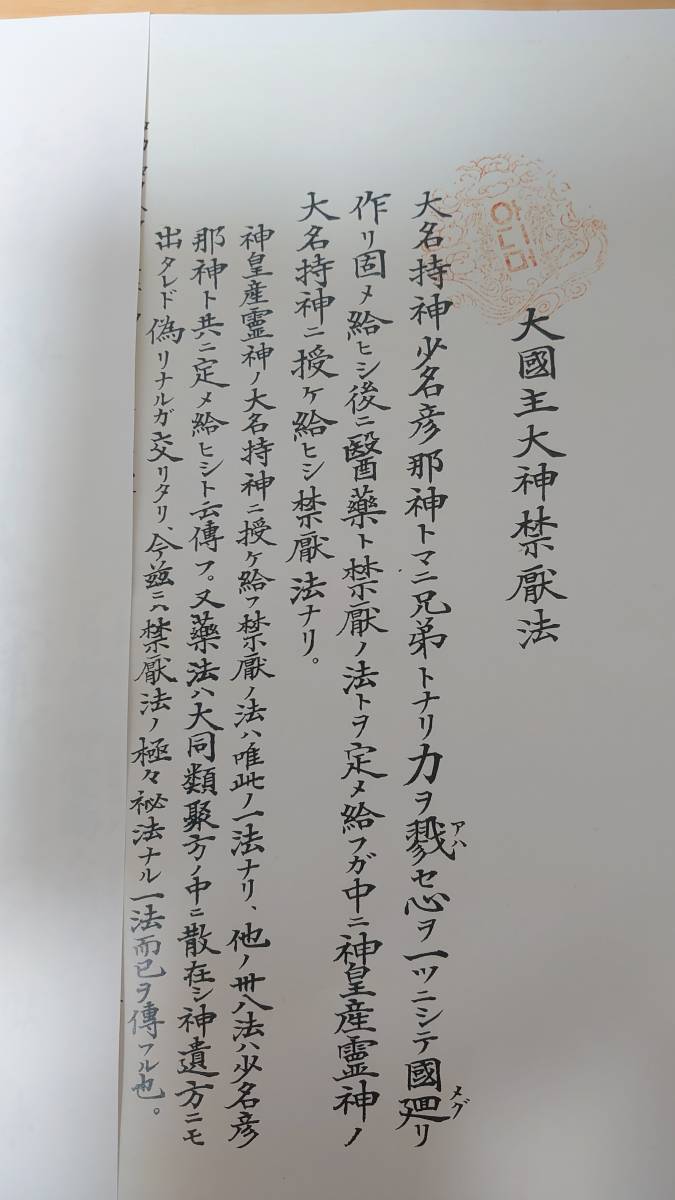 大國主大神禁厭法
아니머
大名持神少名彦那神トマニ兄弟トナリ力ヲ戮セ心ヲ一ツニシテ國廻リ
アハ
メグ
作リ固メ給ヒシ後ニ醫藥ト禁厭ノ法トヲ定メ給フガ中ニ神皇産靈神ノ
大名持神ニ授ケ給ヒシ禁厭法ナリ。
神皇産靈神ノ大名持神ニ授ケ給フ禁厭ノ法ハ唯此ノ一法ナリ、他ノ卌八法ハ少名彦
那神ト共ニ定メ給ヒシト云傳フ。又藥法ハ大同類聚方ノ中ニ散在シ神遺方ニモ
出タレド偽リナルガ交リタリ、今茲ニハ禁厭法ノ極々祕法ナル一法而已ヲ傳フル也。